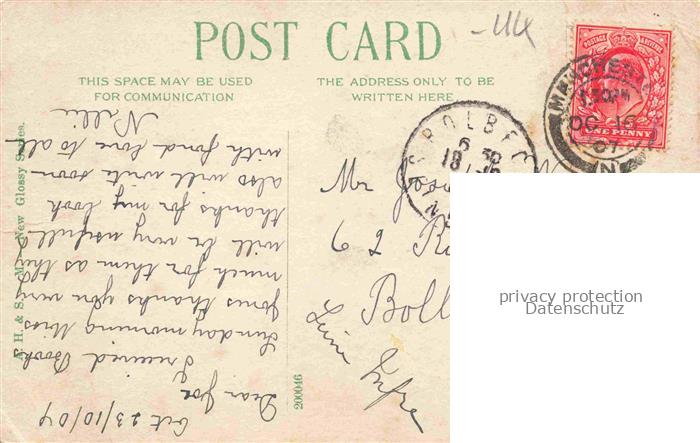 POST CARD
THIS SPACE MAY BE USED
FOR COMMUNICATION
THE ADDRESS ONLY TO BE
WRITTEN HERE
A. H. & S. M. New Glossy Series.
Oct 23/10/07
Dear Joe
I received Book
Sunday morning Miss
Jones thanks you very
much for them as they
will be very usefull
thanks for my book
also will write soon
with fond love to all
Nellie
200046
Mr
62
Boll
Seine Infre
BOLBEC
6 30
18
POSTAGE
REVENUE
ONE PENNY
MANCHESTER
1.30PM
OC 15
07
N
privacy protection
Datenschutz